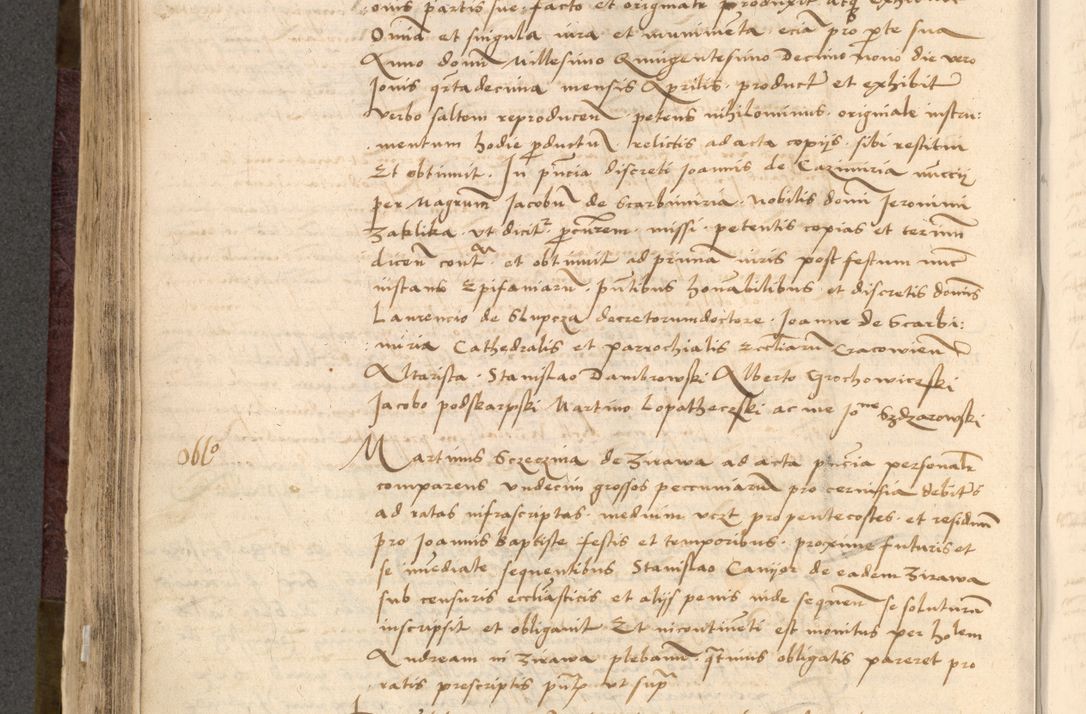 onis partis sue facto et originali produxit atq exhibuit
Omnia et singula iura et munimenta ecia pro pte sua
Anno domi Millesimo Quingentesimo Decimo nono die vero
Jouis qrtadecima mensis Aprilis product et exhibit
verbo saltem reproducen petens nihilominus originale instru:
mentum hodie pductu relictis ad acta copijs sibi restitui
Et obtinuit In pncia discreti Joannis de Cazimiria nuccij
per Magrum Jacobu de Scarbimiria Nobilis domi Jeronimi
Zaklika vt dicit pcurem missi petentis copias et termin
dicen contra et obtinuit ad prima iuris post festum nunc
instans Epifaniaru Pntibus honabilibus et discretis domis
Laurencio de Slupcza decretorum doctore Joanne de Scarbi:
miria Cathedralis et parrochialis Eccliaru Cracowien
Altarista Stanislao Dambrowski Alberto Grochowiceski
Jacobo podskarpski Martino Lopatheczski ac me Jone Szdzarowski
Oblo Martinus Sczeczina de Zirawa ad acta pncia personalr
comparens vndecim grossos peccuniaru pro ceruisia debitus
ad ratas infrascriptas medium vczt pro pentecostes et residuu
pro Joannis Baptiste festis et temporibus proxime futuris et
se imediate sequentibus Stanislao Canijor de eadem Zirawa
sub censuris ecclasticis et alijs penis inde sequen se soluturu
inscripsit et obligauit Et incontinenti est monitus per holem
Andream in Zirawa plebanu qtinus obligatis pareret pro
ratis prescriptis pntp vt supra